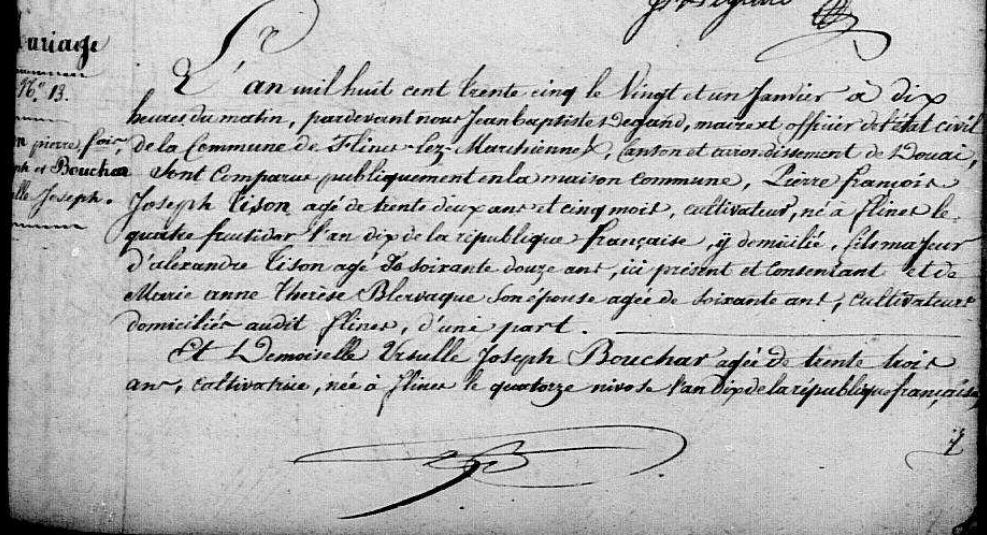 Mariage
N.º 13.
pierre, fois,
ph et Bouchar
lle Joseph.
L'an mil huit cent trente cinq le Vingt et un Janvier à dix
heures du matin, pardevant nous Jean baptiste Degand, maire et officier de l'état civil
de la Commune de Flines-lez-Marchiennes, canton et arrondissement de Douai,
Sont Comparus publiquement en la maison commune, Pierre françois
Joseph Tison agé de trente deux ans et cinq mois, cultivateur, né à flines le
quatre fructidor l'an dix de la république française, y demicilié, fils majeur
d'alexandre Tison agé de soixante douze ans, ici présent et consentant et de
Marie anne Thérèse Blervaque son épouse agée de soixante ans, cultivateurs
domiciliés audit flines, d'une part.
Et Demoiselle Ursulle Joseph Bouchar agée de trente trois
ans, cultivatrice, née à flines le quatorze nivose l'an dix de la république française,